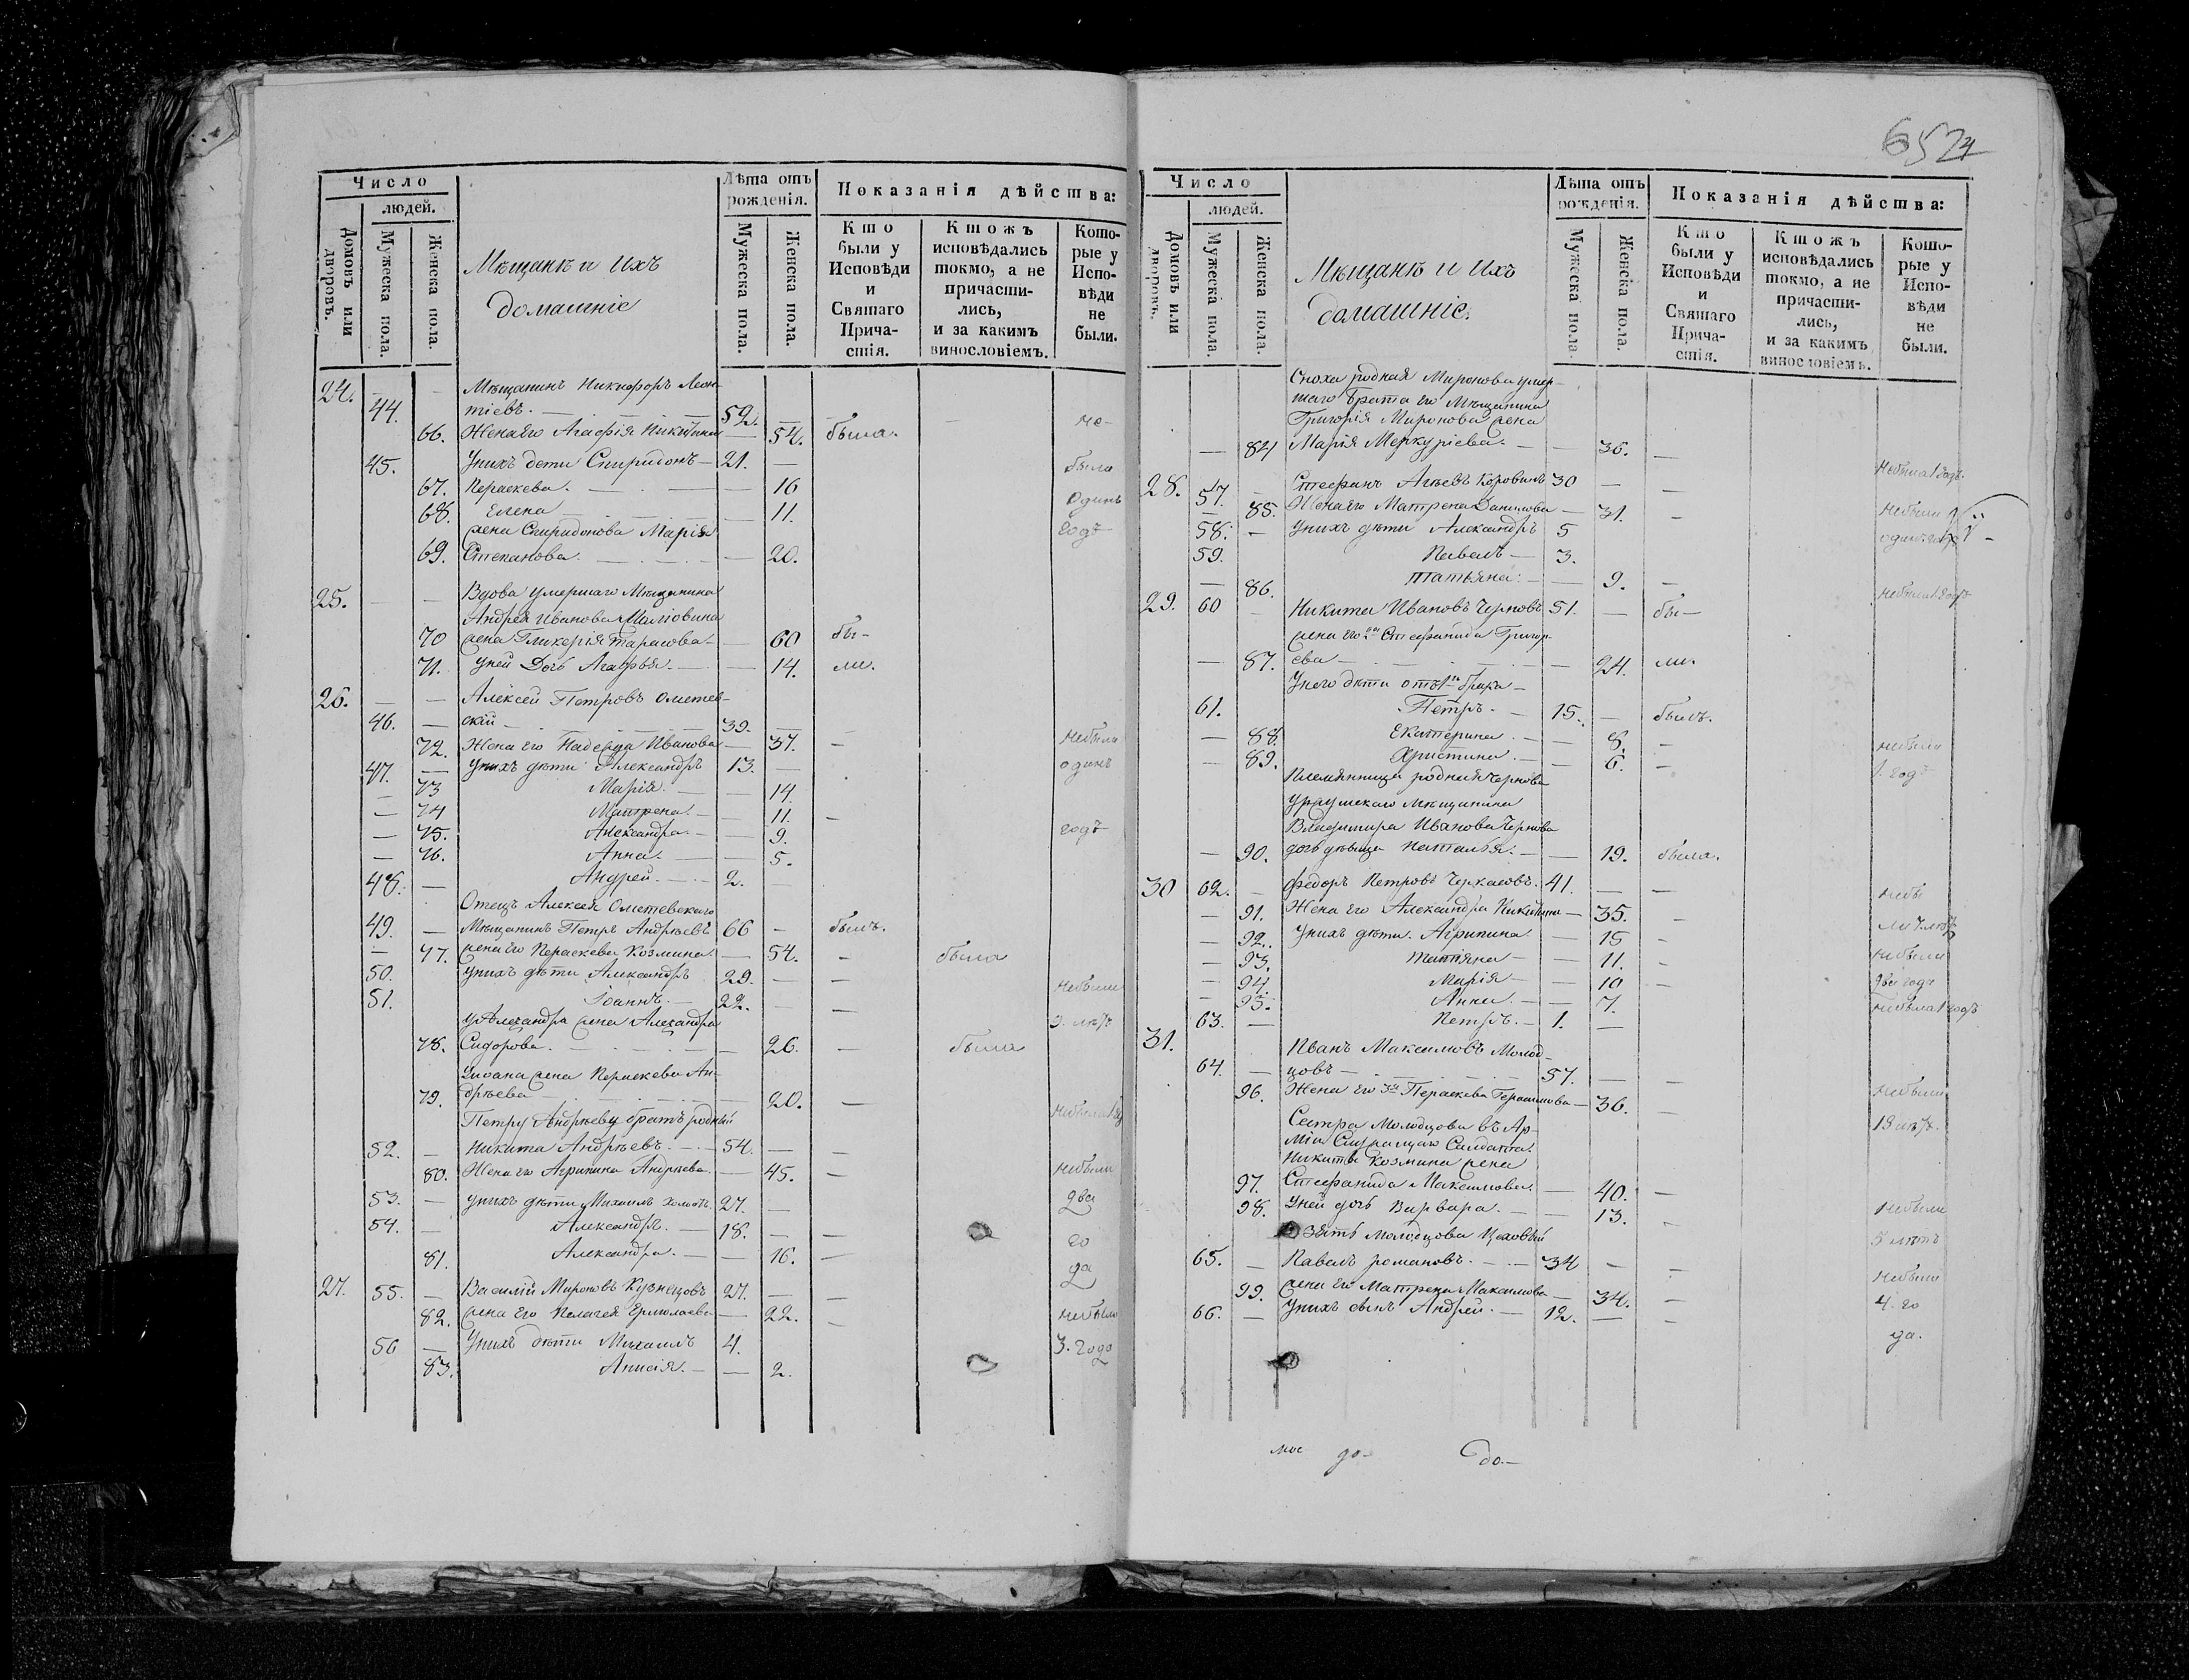 Число
людей.
Домовъ или дворовъ.
Мужеска пола.
Женска пола.
Мѣщанѣ и Ихъ
домашніе
Лѣта отъ
рожденія.
Мужеска пола.
Женска пола.
Показанія дѣйства:
Кто
были у
Исповѣди
и
Святаго
Прича-
стія.
Ктожъ
исповѣдались
токмо, а не
причасти-
лись,
и за какимъ
винословіемъ.
Кото-
рые у
Испо-
вѣди
не
были.
24. Мѣщанинъ Никифоръ Леон-
44. тіевъ. — 52. — не-
66. Жена его Агафія Никитина — 54. была.
45. Унихъ дети Спиридонъ — 21. — было
67. Пераскева. — 16
68. Елена — 11. одинъ
жена Спиридонова Марія годъ
69. Степанова. — 20.
25. Вдова умершаго Мѣщанина
Андрея Иванова
70 жена Гликерія Тарасова — 60 бы-
71. Уней Дочь Агафья. — 14. ли.
26. — — Алексей Петровъ Ометев-
46. — скій — 39. —
72. Жена его Надежда Иванова — 37. — небыли
47. — Унихъ дѣти Александръ 13. — одинъ
— 73 Марія. — 14
— 74 Матрена. — 11. —
— 75. Александра — 9. годъ
— 76. Анна. — 5.
48. — Андрей. — 2. —
Отецъ Алексея Ометевскаго
49. — Мѣщанинъ Петръ Андрѣевъ 66 — былъ.
— 77. жена его Пераскева Козмина. — 54. — была
50. Унихъ дѣти Александръ 29. — — небыли
51. Іоаннъ. — 22. — —
у Александра жена Александра
78. Сидорова. — 26. — была
Уиоана жена Пераскева Ан-
79. дрѣева — 20. —
Петру Андрѣеву братъ родный
52. — Никита Андрѣевъ. — 54. —
80. Жена его Агрипина Андрѣева. — 45. — небыли
53. — Унихъ дѣти Михаилъ холостъ. 27. — два
54. — Александръ. — 18. — — го
81. Александра. — 16. — да
27. 55. — Василій Мироновъ Кузнецовъ 27. —
82. жена его Пелагея Ермолаева — 22. — небыло
56 — Унихъ дѣти Михаилъ 4. 3. годо
83. Анисія. — — 2.
6524
Число
людей.
Домовъ или дворовъ.
Мужеска пола.
Женска пола.
Мѣщанѣ и Ихъ
домашніе.
Лѣта отъ
рожденія.
Мужеска пола.
Женска пола.
Показанія дѣйства:
Кто
были у
Исповѣди
и
Святаго
Прича-
стія.
Ктожъ
исповѣдались
токмо, а не
причасти-
лись,
и за какимъ
винословіемъ.
Кото-
рые у
Испо-
вѣди
не
были.
Сноха родная Миронова умер-
шаго брата его Мѣщанина
Григорія Миронова жена
— 84 Марія Меркуріева. — 36. — небыла 1 годъ.
28. 57 — Стефанъ Агѣевъ Коровинъ 30 — —
— 85. Жена его Матрена Данилова — 31. — небыли
58. — Унихъ дѣти Александръ 5 одинъ годъ
59. Павелъ — 3.
— 86. Татьяна: — — 9. — небыла 1 годъ
29. 60 — Никита Ивановъ Черновъ 51. — бы—
жена его Стефанида Григор-
— 87. ева — 24. ли.
Унего дѣти отъ 1го брака —
61. Петръ. — 15. — былъ.
— 88. Екатерина. — 8. — небыли
— 89. Христина. — 6. — 1. годъ
Племянница родная Чернова
Уржумскаго Мѣщанина
Владимира Иванова Чернова
— 90. дочь дѣвица Наталья. — 19. была.
30 62. — Федоръ Петровъ Черкасовъ. 41. — — небы
— 91. Жена его Александра Никитина — 35. —
— 92. Унихъ дѣти. Агрипина. — 15 — небыли
— 93. Татіяна — 11. — два года
— 94. Марія — 10 —
— 95. Анна. — — 7. небыла 1 годъ
63. — Петръ. — 1. —
31. Иванъ Максимовъ Молод-
64. — цовъ — 57. — —
96. Жена его Пераскева Герасимова — 36. — небыли
Сестра Молодцова въ Ар- 19 лѣтъ.
міи Служащаго Салдата
Никиты Козмина жена
97. Стефанида Максимова. — 40. —
98. Уней дочь Варвара. — — 13. — небыли
Зять Молодцова Цеховый 5 лѣтъ
65. — Павелъ романовъ. — 34 — —
99. жена его Матрена Максимова — 34. — небыли
66. — Унихъ сынъ Андрей. — 12. — — 4. го
да.
до— до.—